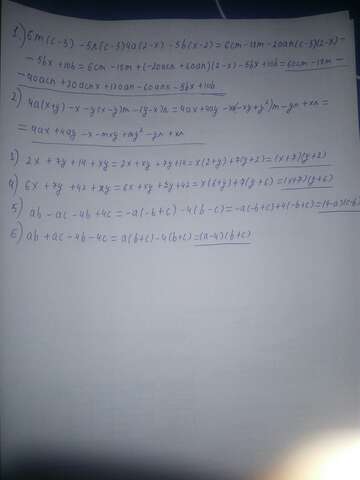 1) 6m(c-3) -5n(c-3)4a(2-x) -5b(x-2)=6cm-18m-20an(c-3)(2-x)-
-5bx+10b=6cm-18m+(-20acn+60an)(2-x)-5bx+10b=6cm-18m-
-40acn+20acnx+120an-60anx-5bx+10b
2) 4a(x+y)-x-y(x-y)m-(y-x)n=4ax+4ay-x-
=4ax+4ay-x-mxy+my²-yn+xn
3) 2x+7y+14+xy=2x+xy+7y+14=x(2+y)+7(y+2)=(x+7)(y+2)
4) 6x+7y+42+xy=6x+xy+7y+42=x(6+y)+7(y+6)=(x+7)(y+6)
5) ab-ac-4b+4c=-a(-b+c)-4(b-c)=-a(-b+c)+4(-b+c)=(4-a)(-b
6) ab+ac-4b-4c=a(b+c)-4(b+c)=(a-4)(b+c)